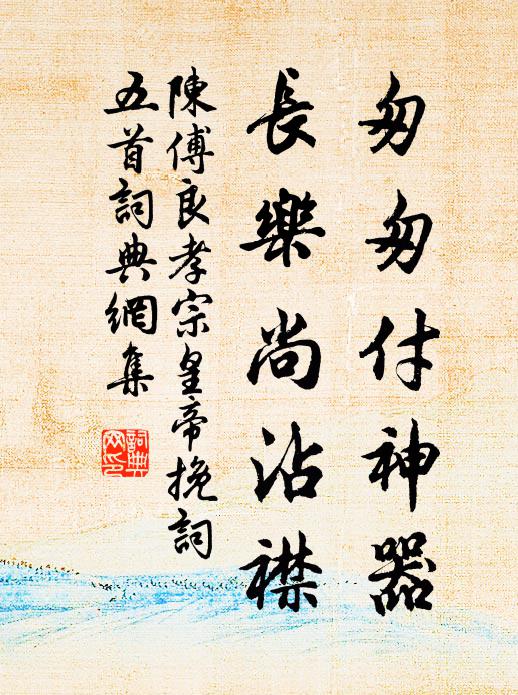 匆匆付神器
長樂尚沾襟
陳傅良孝宗皇帝挽詞
五首詞典網集
詞典網印